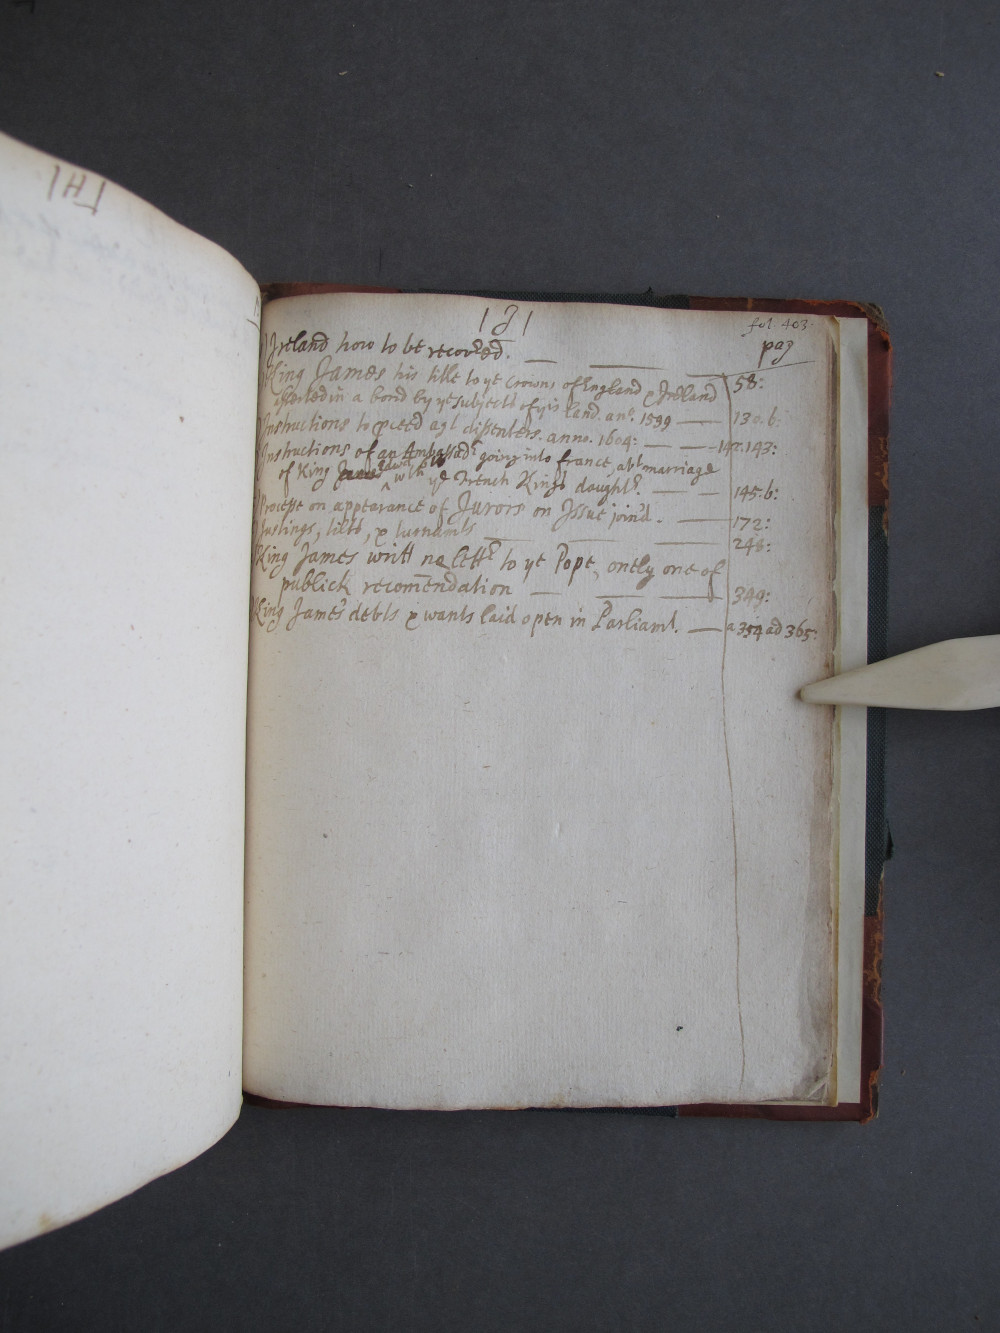 |J|
fol. 403.
pag
Ireland how to be recovred. — — —
King James his title to ye Crowns of England & Ireland 58:
asserted in a bond by ye subjects of yis land. ano. 1599 — 130.b:
Instructions to pceed agt dissenters. anno. 1604: — — 142.143:
Instructions of an Ambassadr going into france, abt marriage
of King James Edwd 6th wth ye French Kings daughtr. — — 145:b:
Processe on appearance of Jurors on Issue join'd. — 172:
Justings, tilts, & turnamts — — — 248:
King James writt no lettr to ye Pope, onely one of
publick recomendation — — 349:
King James' debts & wants laid open in Parliamt. — a 354 ad 365:
|H|